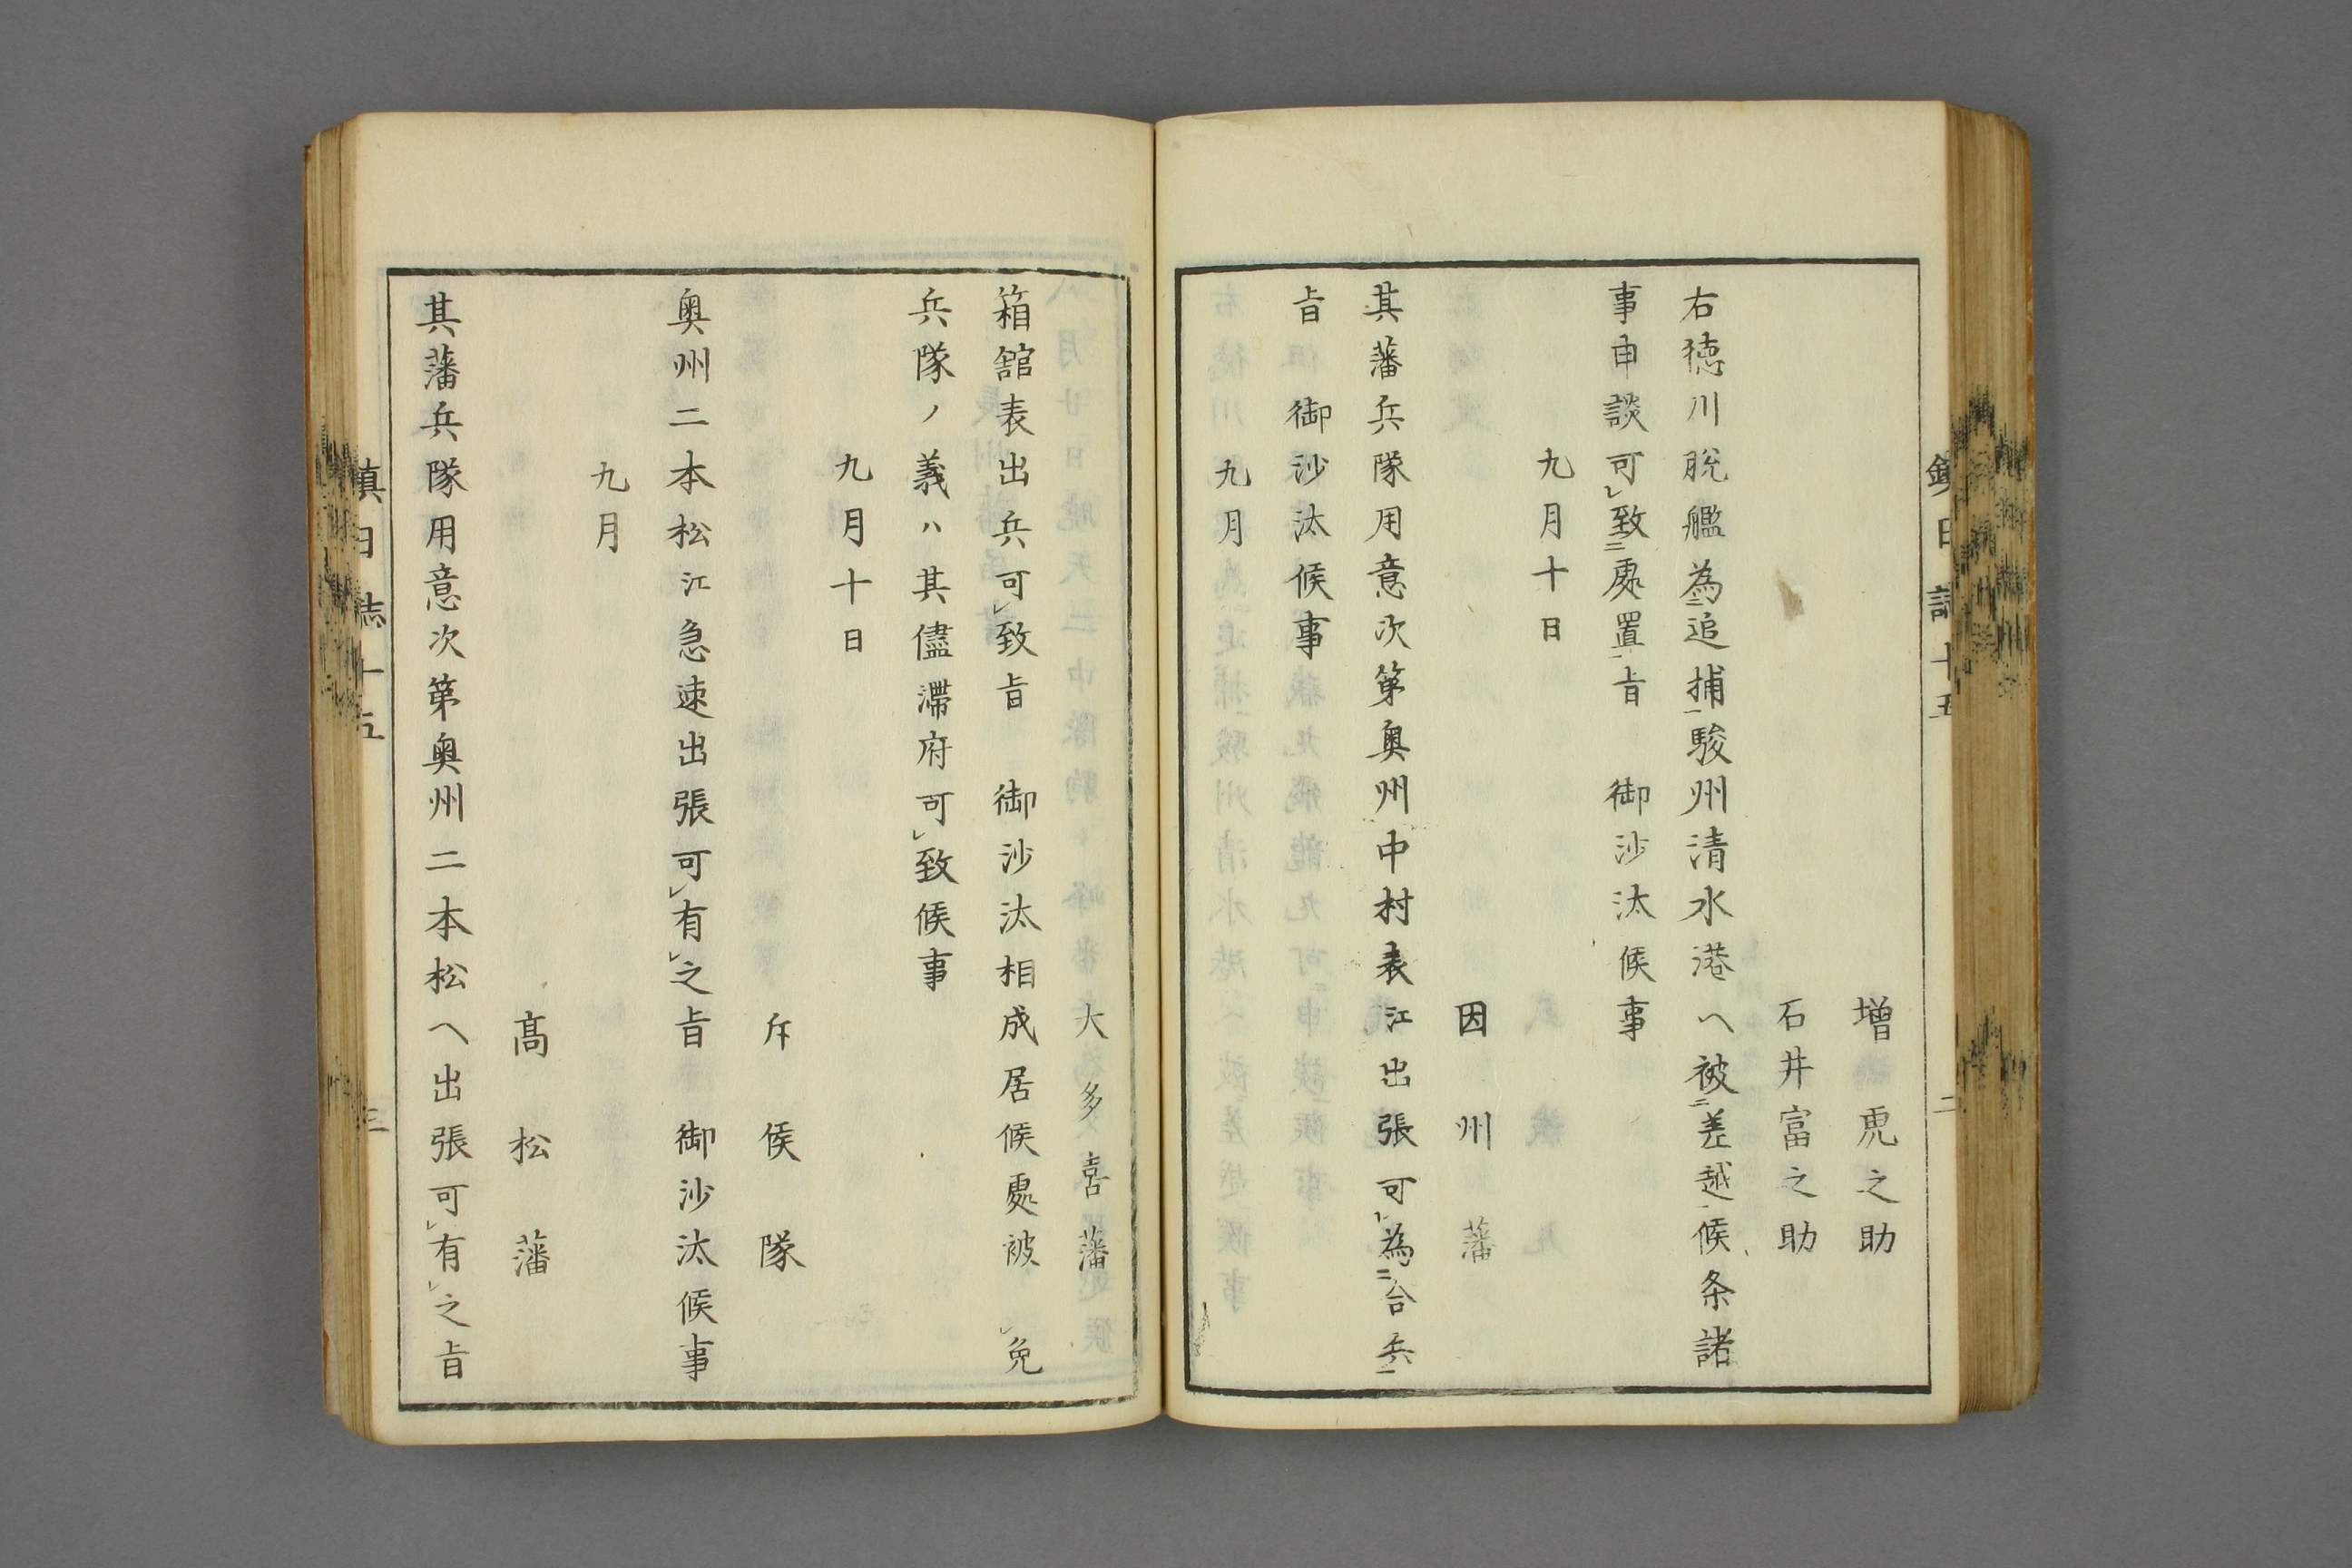 増虎之助
石井富之助
右徳川脱艦為㆓追捕㆒駿州清水港ヘ被㆓差越㆒候条諸
事申談可㆑致㆓處置㆒旨　御沙汰候事
九月十日
因州藩
其藩兵隊用意次第奥州中村表江出張可㆑為㆓合兵㆒
旨　御沙汰候事
九月
鎮日誌十五
二
大多喜藩
箱舘表出兵可㆑致旨　御沙汰相成居候處被　㆑免
兵隊ノ義ハ其儘滞府可㆑致候事
九月十日
斥候隊
奥州二本松江急速出張可㆑有㆑之旨　御沙汰候事
九月
高松藩
其藩兵隊用意次第奥州二本松ヘ出張可㆑有㆑之旨
鎮日誌十五
三